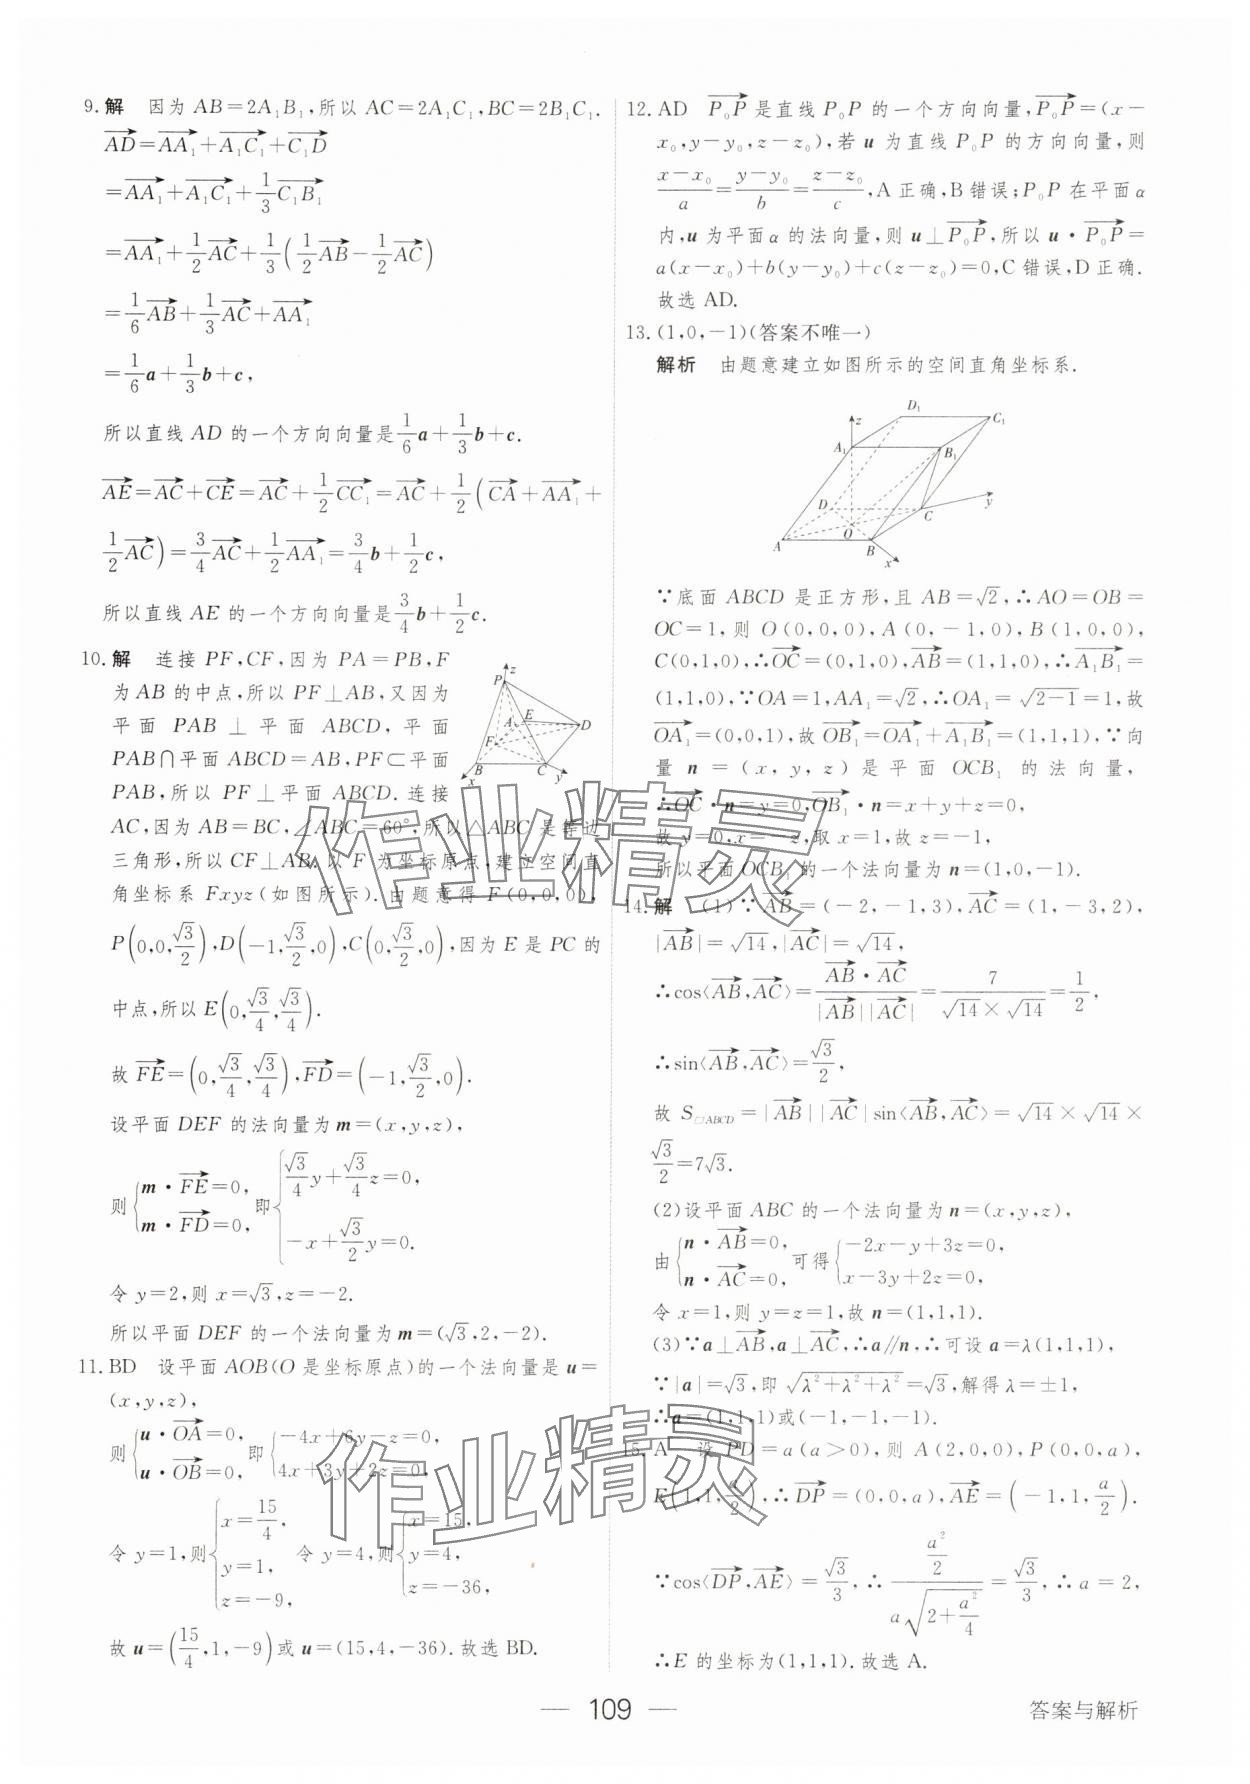 9. 解　因为 AB=2A₁B₁,所以 AC=2A₁C₁,BC=2B₁C₁.
\overrightarrow{AD}=\overrightarrow{AA₁}+\overrightarrow{A₁C₁}+\overrightarrow{C₁D}
=\overrightarrow{AA₁}+\overrightarrow{A₁C₁}+\frac{1}{3}\overrightarrow{C₁B₁}
=\overrightarrow{AA₁}+\frac{1}{2}\overrightarrow{AC}+\frac{1}{3}(\frac{1}{2}\overrightarrow{AB}-\frac{1}{2}\overrightarrow{AC})
=\frac{1}{6}\overrightarrow{AB}+\frac{1}{3}\overrightarrow{AC}+\overrightarrow{AA₁}
=\frac{1}{6}a+\frac{1}{3}b+c,
所以直线 AD 的一个方向向量是\frac{1}{6}a+\frac{1}{3}b+c.
\overrightarrow{AE}=\overrightarrow{AC}+\overrightarrow{CE}=\overrightarrow{AC}+\frac{1}{2}\overrightarrow{CC₁}=\overrightarrow{AC}+\frac{1}{2}(\overrightarrow{CA}+\overrightarrow{AA₁}+
\frac{1}{2}\overrightarrow{AC})=\frac{3}{4}\overrightarrow{AC}+\frac{1}{2}\overrightarrow{AA₁}=\frac{3}{4}b+\frac{1}{2}c,
所以直线 AE 的一个方向向量是\frac{3}{4}b+\frac{1}{2}c.
10. 解　连接 PF,CF,因为 PA=PB,F
为 AB 的中点,所以 PF⊥AB,又因为
平面 PAB ⊥ 平面 ABCD,平面
PAB∩平面 ABCD=AB,PF⊂平面
PAB,所以 PF⊥平面 ABCD.连接
AC,因为 AB=BC,∠ABC=60°,所以△ABC 是等边
三角形,所以 CF⊥AB.以 F 为坐标原点,建立空间直
角坐标系 Fxyz(如图所示).由题意得 F(0,0,0),
P(0,0,\frac{√3}{2}),D(-1,\frac{√3}{2},0),C(0,\frac{√3}{2},0),因为 E 是 PC 的
中点,所以 E(0,\frac{√3}{4},\frac{√3}{4}).
故 \overrightarrow{FE}=(0,\frac{√3}{4},\frac{√3}{4}),\overrightarrow{FD}=(-1,\frac{√3}{2},0).
设平面 DEF 的法向量为 m=(x,y,z),
则{m·\overrightarrow{FE}=0, m·\overrightarrow{FD}=0, 即{\frac{√3}{4}y+\frac{√3}{4}z=0, -x+\frac{√3}{2}y=0.
令 y=2,则 x=√3,z=-2.
所以平面 DEF 的一个法向量为 m=(√3,2,-2).
11. BD　设平面 AOB(O 是坐标原点)的一个法向量是 u=
(x,y,z),
则{u·\overrightarrow{OA}=0, u·\overrightarrow{OB}=0, 即{-4x+6y-z=0, 4x+3y+2z=0,
令 y=1,则{x=\frac{15}{4}, y=1, z=-9, 令 y=4,则{x=15, y=4, z=-36,
故 u=(\frac{15}{4},1,-9)或 u=(15,4,-36).故选 BD.
z
P
A
E
D
F
B
C
x
y
12. AD　\overrightarrow{P₀P} 是直线 P₀P 的一个方向向量,\overrightarrow{P₀P}=(x-
x₀,y-y₀,z-z₀),若 u 为直线 P₀P 的方向向量,则
\frac{x-x₀}{a}=\frac{y-y₀}{b}=\frac{z-z₀}{c},A 正确,B 错误;P₀P 在平面 α
内,u 为平面 α 的法向量,则 u⊥\overrightarrow{P₀P},所以 u·\overrightarrow{P₀P}=
a(x-x₀)+b(y-y₀)+c(z-z₀)=0,C 错误,D 正确.
故选 AD.
13. (1,0,-1)(答案不唯一)
解析　由题意建立如图所示的空间直角坐标系.
D₁
C₁
z
A₁
B₁
D
C
y
A
O
B
x
∵底面 ABCD 是正方形,且 AB=√2,∴AO=OB=
OC=1,则 O(0,0,0),A(0,-1,0),B(1,0,0),
C(0,1,0),∴\overrightarrow{OC}=(0,1,0),\overrightarrow{AB}=(1,1,0),∴\overrightarrow{A₁B₁}=
(1,1,0),∵OA=1,AA₁=√2,∴OA₁=\sqrt{2-1}=1,故
\overrightarrow{OA₁}=(0,0,1),故\overrightarrow{OB₁}=\overrightarrow{OA₁}+\overrightarrow{A₁B₁}=(1,1,1),∵向
量 n=(x,y,z)是平面 OCB₁ 的法向量,
∴\overrightarrow{OC}·n=y=0,\overrightarrow{OB₁}·n=x+y+z=0,
故 y=0,x=-z,取 x=1,故 z=-1,
所以平面 OCB₁ 的一个法向量为 n=(1,0,-1).
14. 解　(1)∵\overrightarrow{AB}=(-2,-1,3),\overrightarrow{AC}=(1,-3,2),
|\overrightarrow{AB}|=√14,|\overrightarrow{AC}|=√14,
∴cos⟨\overrightarrow{AB},\overrightarrow{AC}⟩=\frac{\overrightarrow{AB}·\overrightarrow{AC}}{|\overrightarrow{AB}||\overrightarrow{AC}|}=\frac{7}{√14×√14}=\frac{1}{2},
∴sin⟨\overrightarrow{AB},\overrightarrow{AC}⟩=\frac{√3}{2},
故 S_{□ABCD}=|\overrightarrow{AB}||\overrightarrow{AC}|sin⟨\overrightarrow{AB},\overrightarrow{AC}⟩=√14×√14×
\frac{√3}{2}=7√3.
(2)设平面 ABC 的一个法向量为 n=(x,y,z),
由{n·\overrightarrow{AB}=0, n·\overrightarrow{AC}=0, 可得{-2x-y+3z=0, x-3y+2z=0,
令 x=1,则 y=z=1,故 n=(1,1,1).
(3)∵a⊥\overrightarrow{AB},a⊥\overrightarrow{AC},∴a∥n,∴可设 a=λ(1,1,1),
∵|a|=√3,即\sqrt{λ²+λ²+λ²}=√3,解得 λ=±1,
∴a=(1,1,1)或(-1,-1,-1).
15. A　设 PD=a(a>0),则 A(2,0,0),P(0,0,a),
E(1,1,\frac{a}{2}),∴\overrightarrow{DP}=(0,0,a),\overrightarrow{AE}=(-1,1,\frac{a}{2}).
∵cos⟨\overrightarrow{DP},\overrightarrow{AE}⟩=\frac{√3}{3},∴\frac{\frac{a²}{2}}{a\sqrt{2+\frac{a²}{4}}}=\frac{√3}{3},∴a=2,
∴E 的坐标为(1,1,1).故选 A.
作业精灵
作业精灵
— 109 —
答案与解析